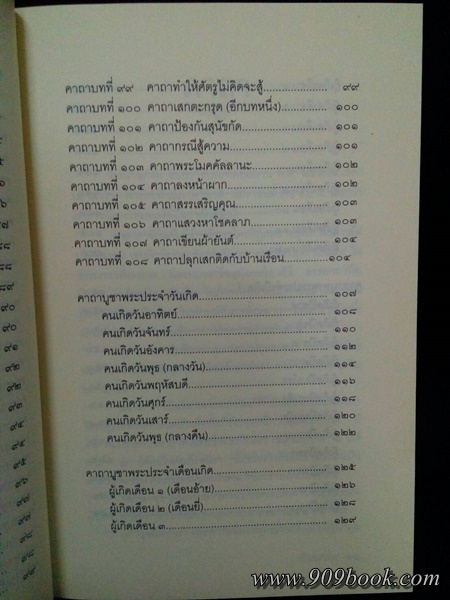 คาถาบทที่ ๙๙ คาถาทำให้ศัตรูไม่คิดจะสู้..................... ๙๙
คาถาบทที่ ๑๐๐ คาถาเสกตะกรุด (อีกบทหนึ่ง)................ ๑๐๐
คาถาบทที่ ๑๐๑ คาถาป้องกันสุนัขกัด............................ ๑๐๑
คาถาบทที่ ๑๐๒ คาถากรณีสู้ความ............................... ๑๐๑
คาถาบทที่ ๑๐๓ คาถาพระโมคคัลลานะ......................... ๑๐๒
คาถาบทที่ ๑๐๔ คาถาลงหน้าผาก................................ ๑๐๒
คาถาบทที่ ๑๐๕ คาถาสรรเสริญคุณ.............................. ๑๐๓
คาถาบทที่ ๑๐๖ คาถาแสวงหาโชคลาภ........................ ๑๐๓
คาถาบทที่ ๑๐๗ คาถาเขียนผ้ายันต์.............................. ๑๐๔
คาถาบทที่ ๑๐๘ คาถาปลุกเสกติดกับบ้านเรือน.............๑๐๔
คาถาบูชาพระประจำวันเกิด........................................ ๑๐๗
คนเกิดวันอาทิตย์................................................ ๑๐๘
คนเกิดวันจันทร์.................................................. ๑๑๐
คนเกิดวันอังคาร................................................. ๑๑๒
คนเกิดวันพุธ (กลางวัน)....................................... ๑๑๔
คนเกิดวันพฤหัสบดี............................................. ๑๑๖
คนเกิดวันศุกร์.................................................... ๑๑๘
คนเกิดวันเสาร์................................................... ๑๒๐
คนเกิดวันพุธ (กลางคืน)....................................... ๑๒๒
คาถาบูชาพระประจำเดือนเกิด.................................... ๑๒๕
ผู้เกิดเดือน ๑ (เดือนอ้าย)..................................... ๑๒๖
ผู้เกิดเดือน ๒ (เดือนยี่)........................................ ๑๒๘
ผู้เกิดเดือน ๓...................................................... ๑๒๙
www.909book.com